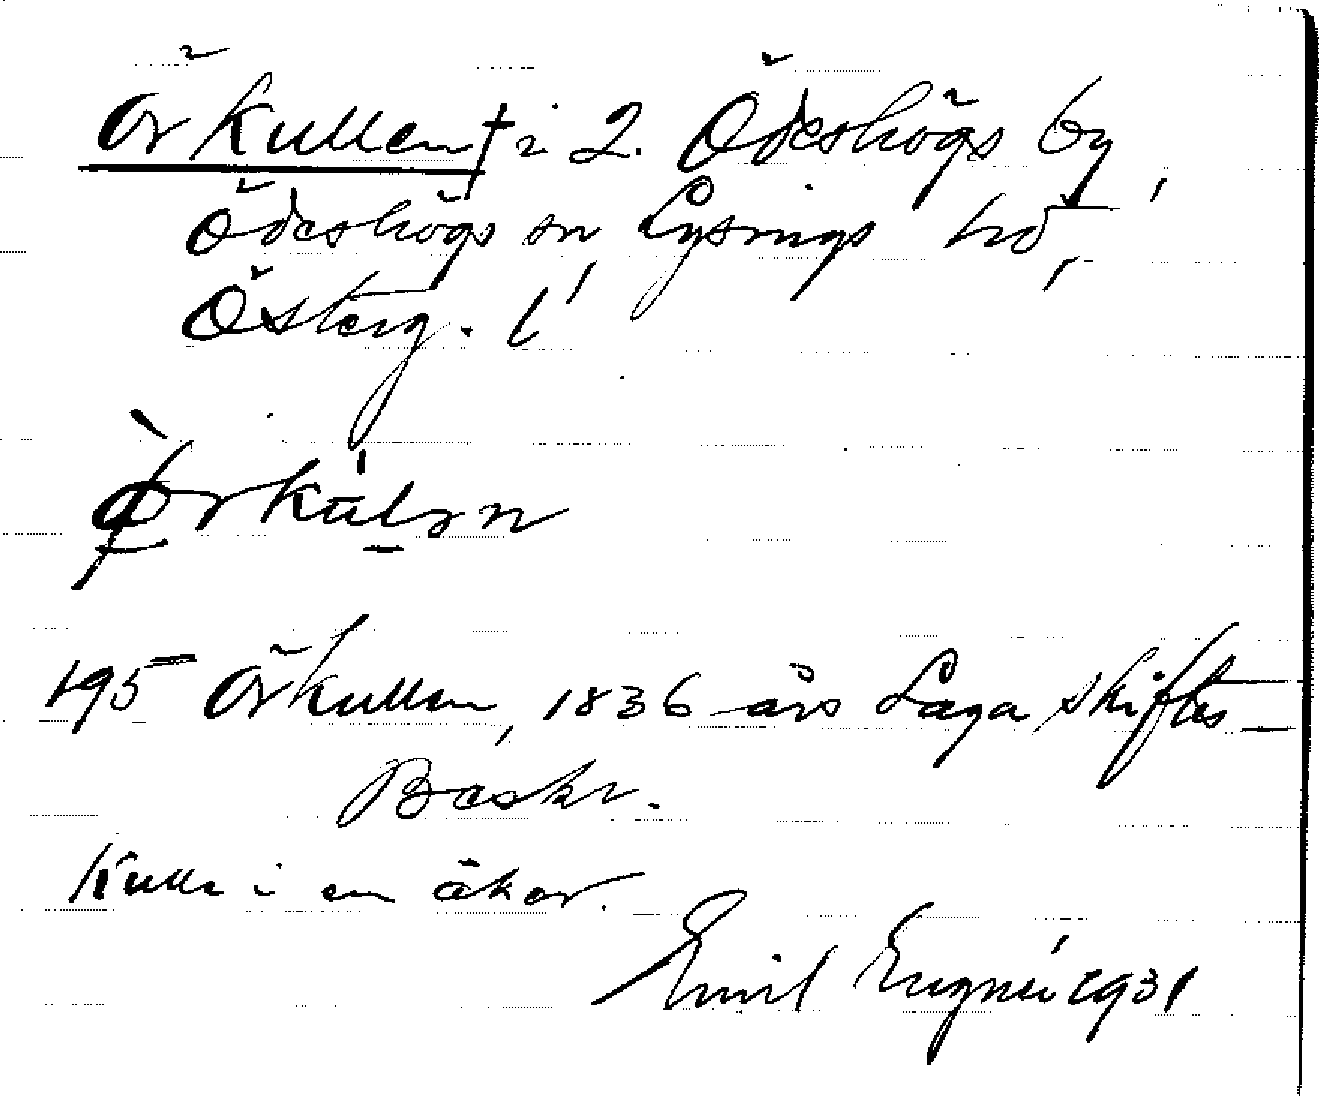 Örkullen † i 2. Ödeshögs by,
Ödeshögs sn, Lysings hd,
Österg. l
195 Örkullen, 1836 års Laga skiftes-
Beskr.
Kulle i en åker.
Emil 1931